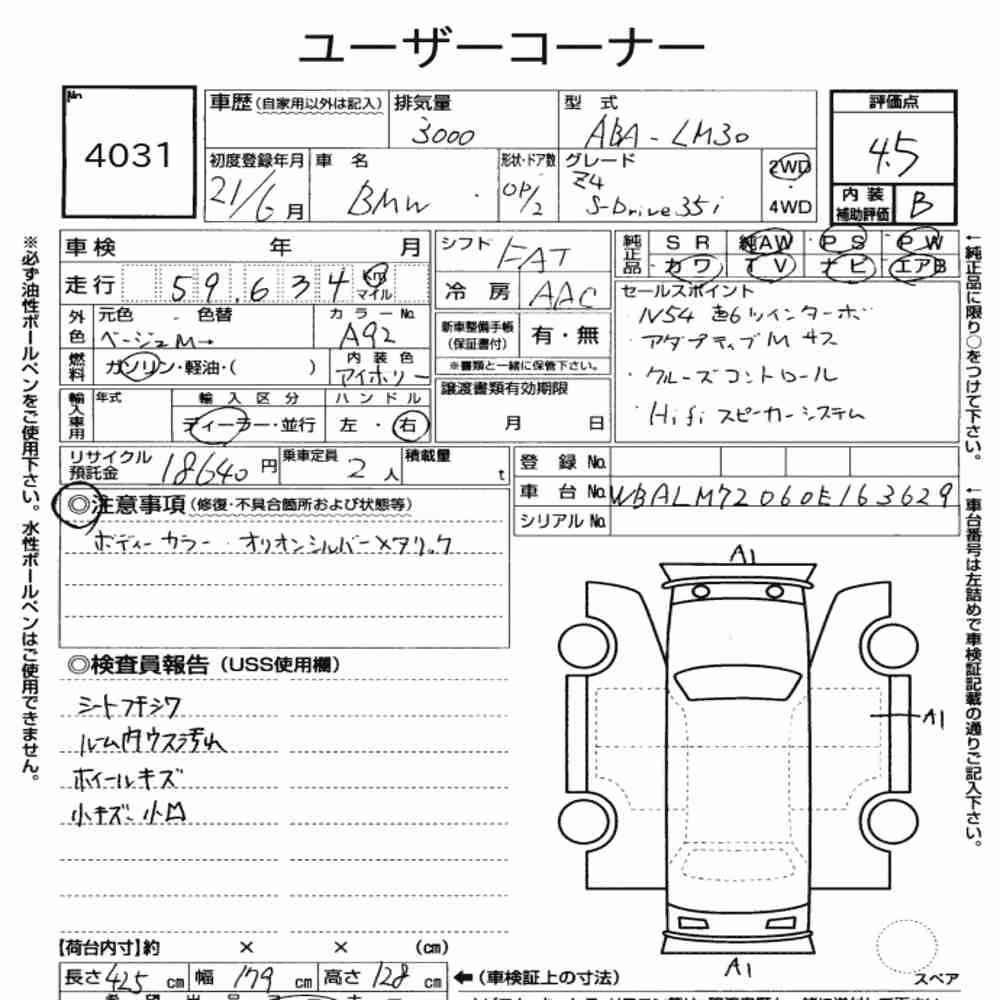 ユーザーコーナー
No.
4031
車歴(自家用以外は記入) 排気量 3000 型式 ABA-LM30
評価点 4.5
初度登録年月 21/6月 車名 BMW 形状・ドア数 OP/2 グレード Z4 S-Drive35i 2WD・4WD
内装補助評価 B
車検 年 月
走行 59,634 Km マイル
外色 元色 ・ 色替 ベージュM→ カラーNo. A92
燃料 ガソリン・軽油・( ) 内装色 アイボリー
輸入車用 年式 輸入区分 ディーラー・並行 ハンドル 左・右
シフト FAT
冷房 AAC
新車整備手帳(保証書付) 有・無
※書類と一緒に保管下さい。
譲渡書類有効期限
月 日
純正品 SR 純AW PS PW
カワ TV ナビ エアB
セールスポイント
・N54 直6ツインターボ
・アダプティブMサス
・クルーズコントロール
・Hifiスピーカーシステム
リサイクル預託金 18640円 乗車定員 2人 積載量 t
登録No.
車台No. WBALM72060E163629
シリアルNo.
◎注意事項(修復・不具合箇所および状態等)
ボディーカラー・オリオンシルバーメタリック
◎検査員報告(USS使用欄)
シートフキシワ
ルーム内ウスラ汚れ
ホイールキズ
小キズ、小凹
A1
A1
A1
スペア
【荷台内寸】約 × × (cm)
長さ425cm 幅179cm 高さ128cm ←(車検証上の寸法)
※必ず油性ボールペンをご使用下さい。水性ボールペンはご使用できません。
←純正品に限り○をつけて下さい。
←車台番号は左詰めで車検証記載の通りご記入下さい。